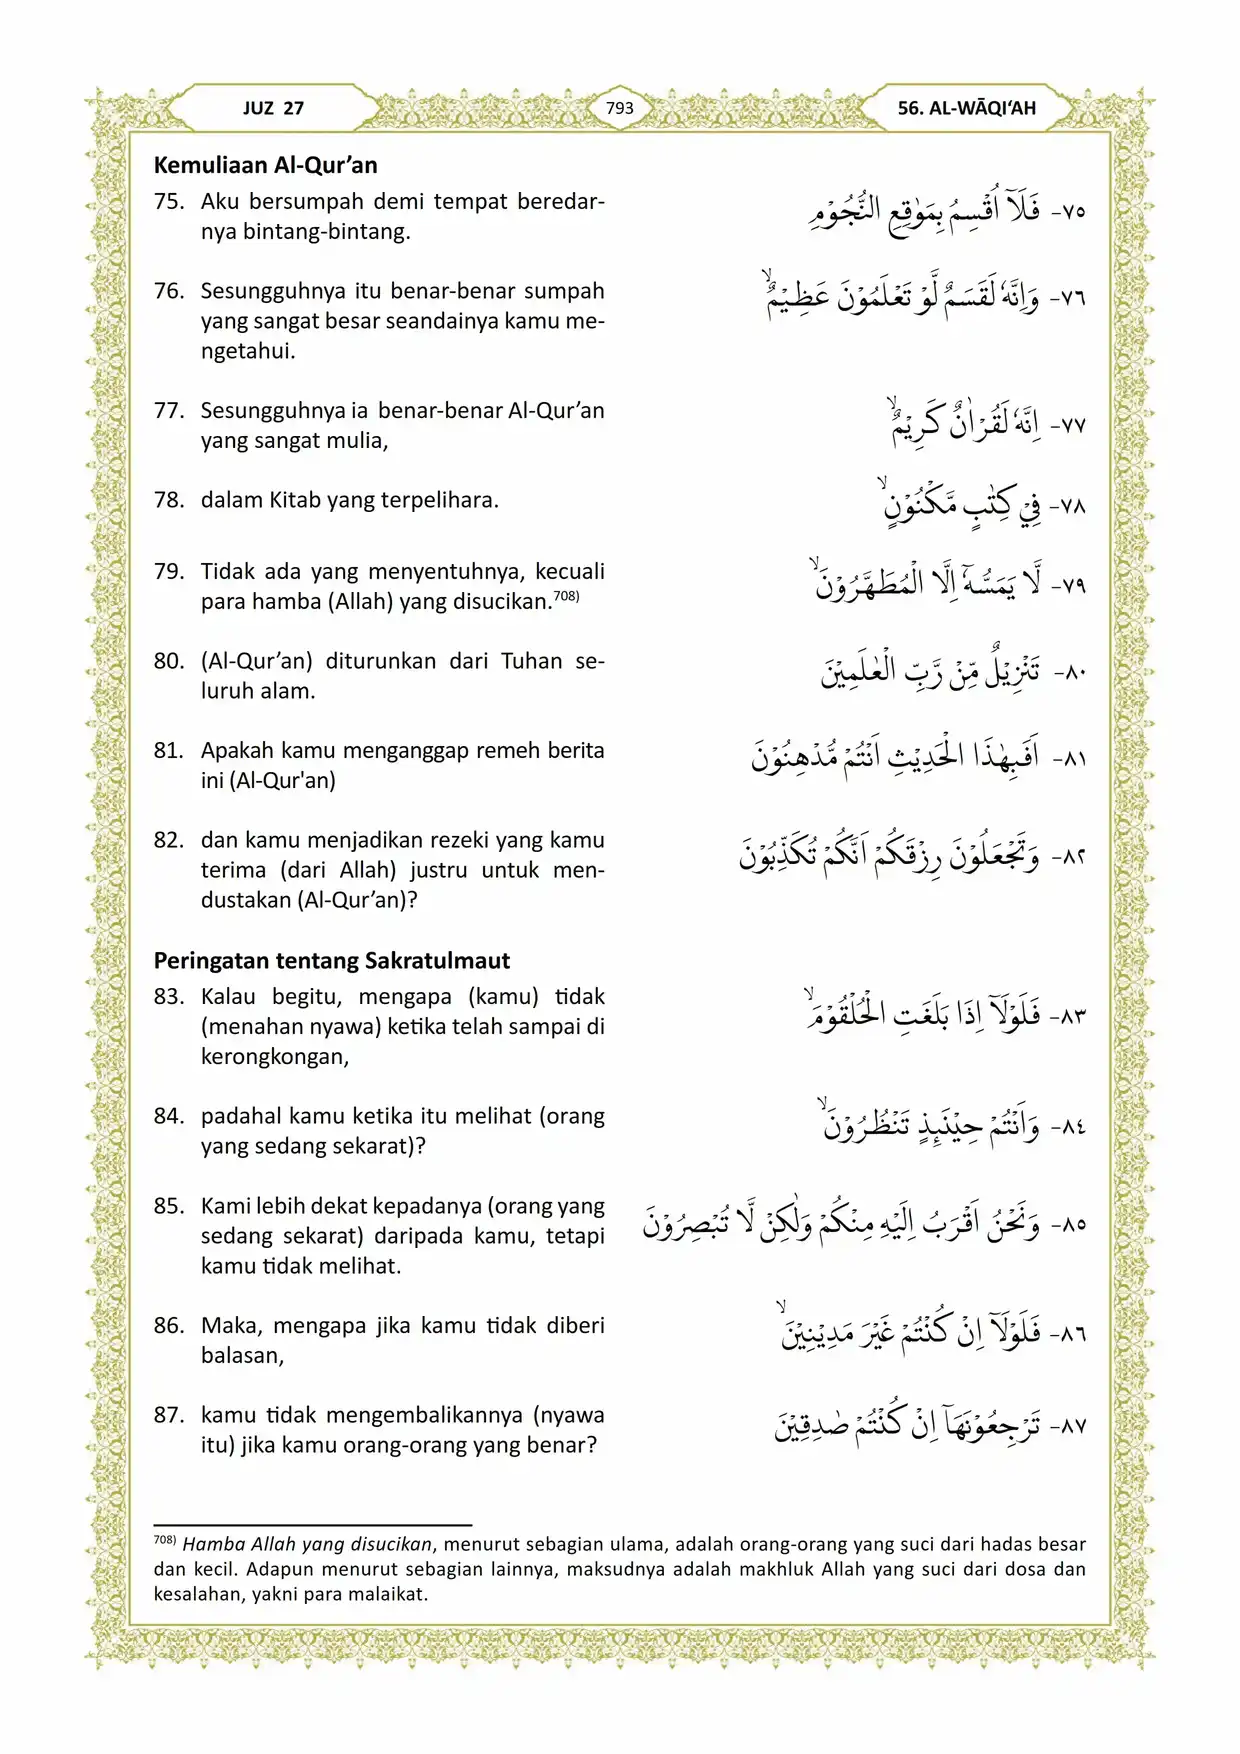 JUZ 27
793
56. AL-WĀQI‘AH
Kemuliaan Al-Qur’an
75. Aku bersumpah demi tempat beredar-
nya bintang-bintang.
٧٥- فَلَآ اُقْسِمُ بِمَوٰقِعِ النُّجُوْمِ
76. Sesungguhnya itu benar-benar sumpah
yang sangat besar seandainya kamu me-
ngetahui.
٧٦- وَاِنَّهٗ لَقَسَمٌ لَّوْ تَعْلَمُوْنَ عَظِيْمٌۙ
77. Sesungguhnya ia benar-benar Al-Qur’an
yang sangat mulia,
٧٧- اِنَّهٗ لَقُرْاٰنٌ كَرِيْمٌۙ
78. dalam Kitab yang terpelihara.
٧٨- فِيْ كِتٰبٍ مَّكْنُوْنٍۙ
79. Tidak ada yang menyentuhnya, kecuali
para hamba (Allah) yang disucikan.708)
٧٩- لَّا يَمَسُّهٗٓ اِلَّا الْمُطَهَّرُوْنَۙ
80. (Al-Qur’an) diturunkan dari Tuhan se-
luruh alam.
٨٠- تَنْزِيْلٌ مِّنْ رَّبِّ الْعٰلَمِيْنَ
81. Apakah kamu menganggap remeh berita
ini (Al-Qur'an)
٨١- اَفَبِهٰذَا الْحَدِيْثِ اَنْتُمْ مُّدْهِنُوْنَ
82. dan kamu menjadikan rezeki yang kamu
terima (dari Allah) justru untuk men-
dustakan (Al-Qur’an)?
٨٢- وَتَجْعَلُوْنَ رِزْقَكُمْ اَنَّكُمْ تُكَذِّبُوْنَ
Peringatan tentang Sakratulmaut
83. Kalau begitu, mengapa (kamu) tidak
(menahan nyawa) ketika telah sampai di
kerongkongan,
٨٣- فَلَوْلَآ اِذَا بَلَغَتِ الْحُلْقُوْمَۙ
84. padahal kamu ketika itu melihat (orang
yang sedang sekarat)?
٨٤- وَاَنْتُمْ حِيْنَىِٕذٍ تَنْظُرُوْنَۙ
85. Kami lebih dekat kepadanya (orang yang
sedang sekarat) daripada kamu, tetapi
kamu tidak melihat.
٨٥- وَنَحْنُ اَقْرَبُ اِلَيْهِ مِنْكُمْ وَلٰكِنْ لَّا تُبْصِرُوْنَ
86. Maka, mengapa jika kamu tidak diberi
balasan,
٨٦- فَلَوْلَآ اِنْ كُنْتُمْ غَيْرَ مَدِيْنِيْنَۙ
87. kamu tidak mengembalikannya (nyawa
itu) jika kamu orang-orang yang benar?
٨٧- تَرْجِعُوْنَهَآ اِنْ كُنْتُمْ صٰدِقِيْنَ
708) Hamba Allah yang disucikan, menurut sebagian ulama, adalah orang-orang yang suci dari hadas besar
dan kecil. Adapun menurut sebagian lainnya, maksudnya adalah makhluk Allah yang suci dari dosa dan
kesalahan, yakni para malaikat.